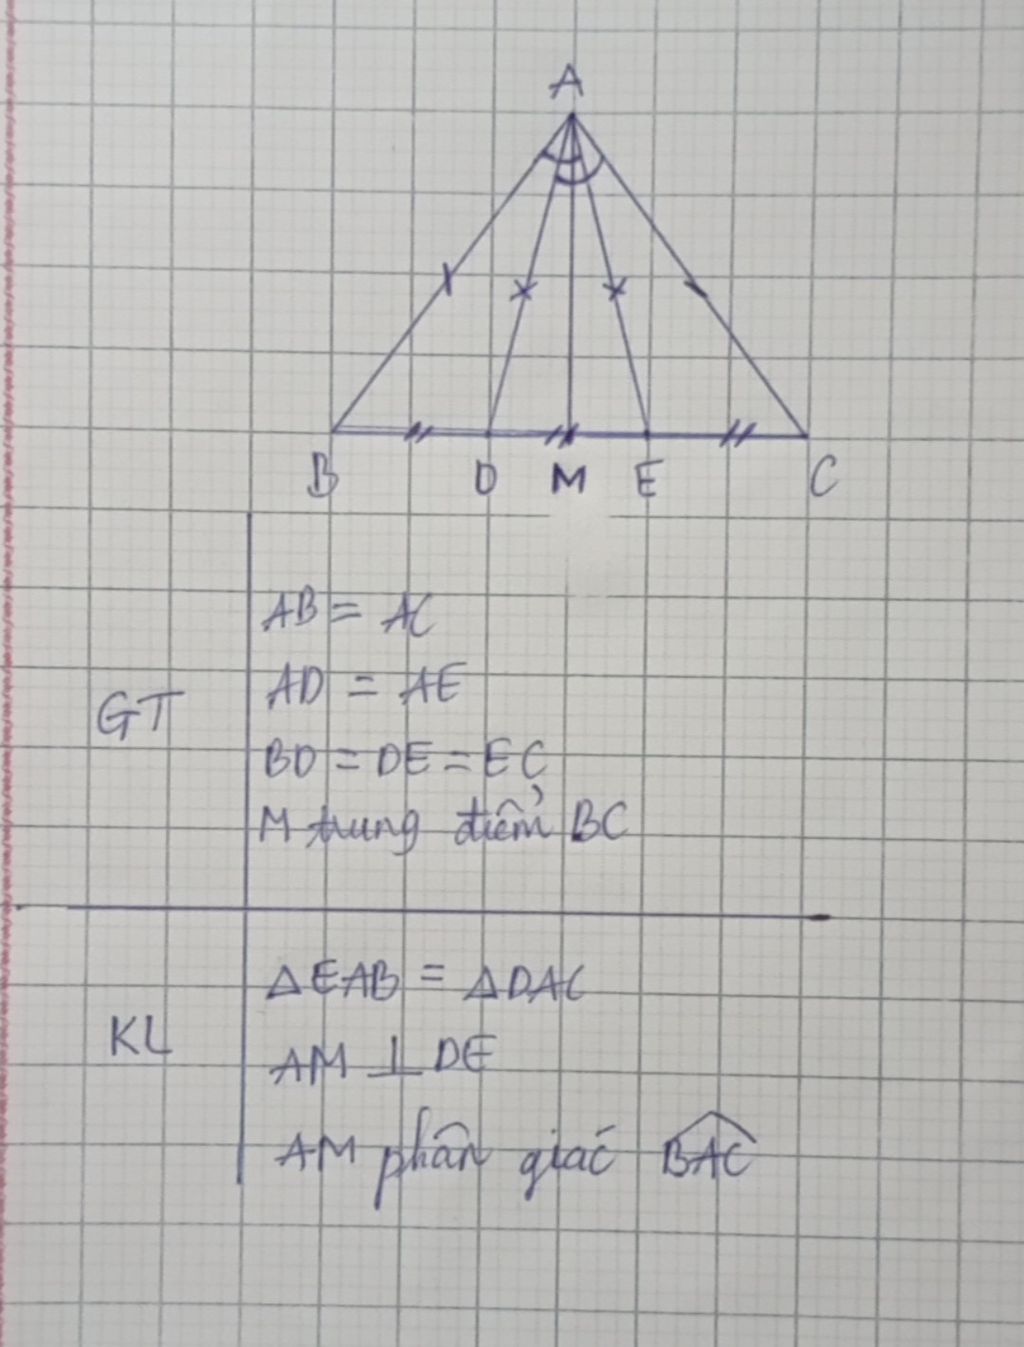 A
B D M E C
AB = AC
AD = AE
GT
BD = DE = EC
M trung điểm BC
ΔEAB = ΔDAC
KL
AM ⊥ DE
AM phân giác \widehat{BAC}